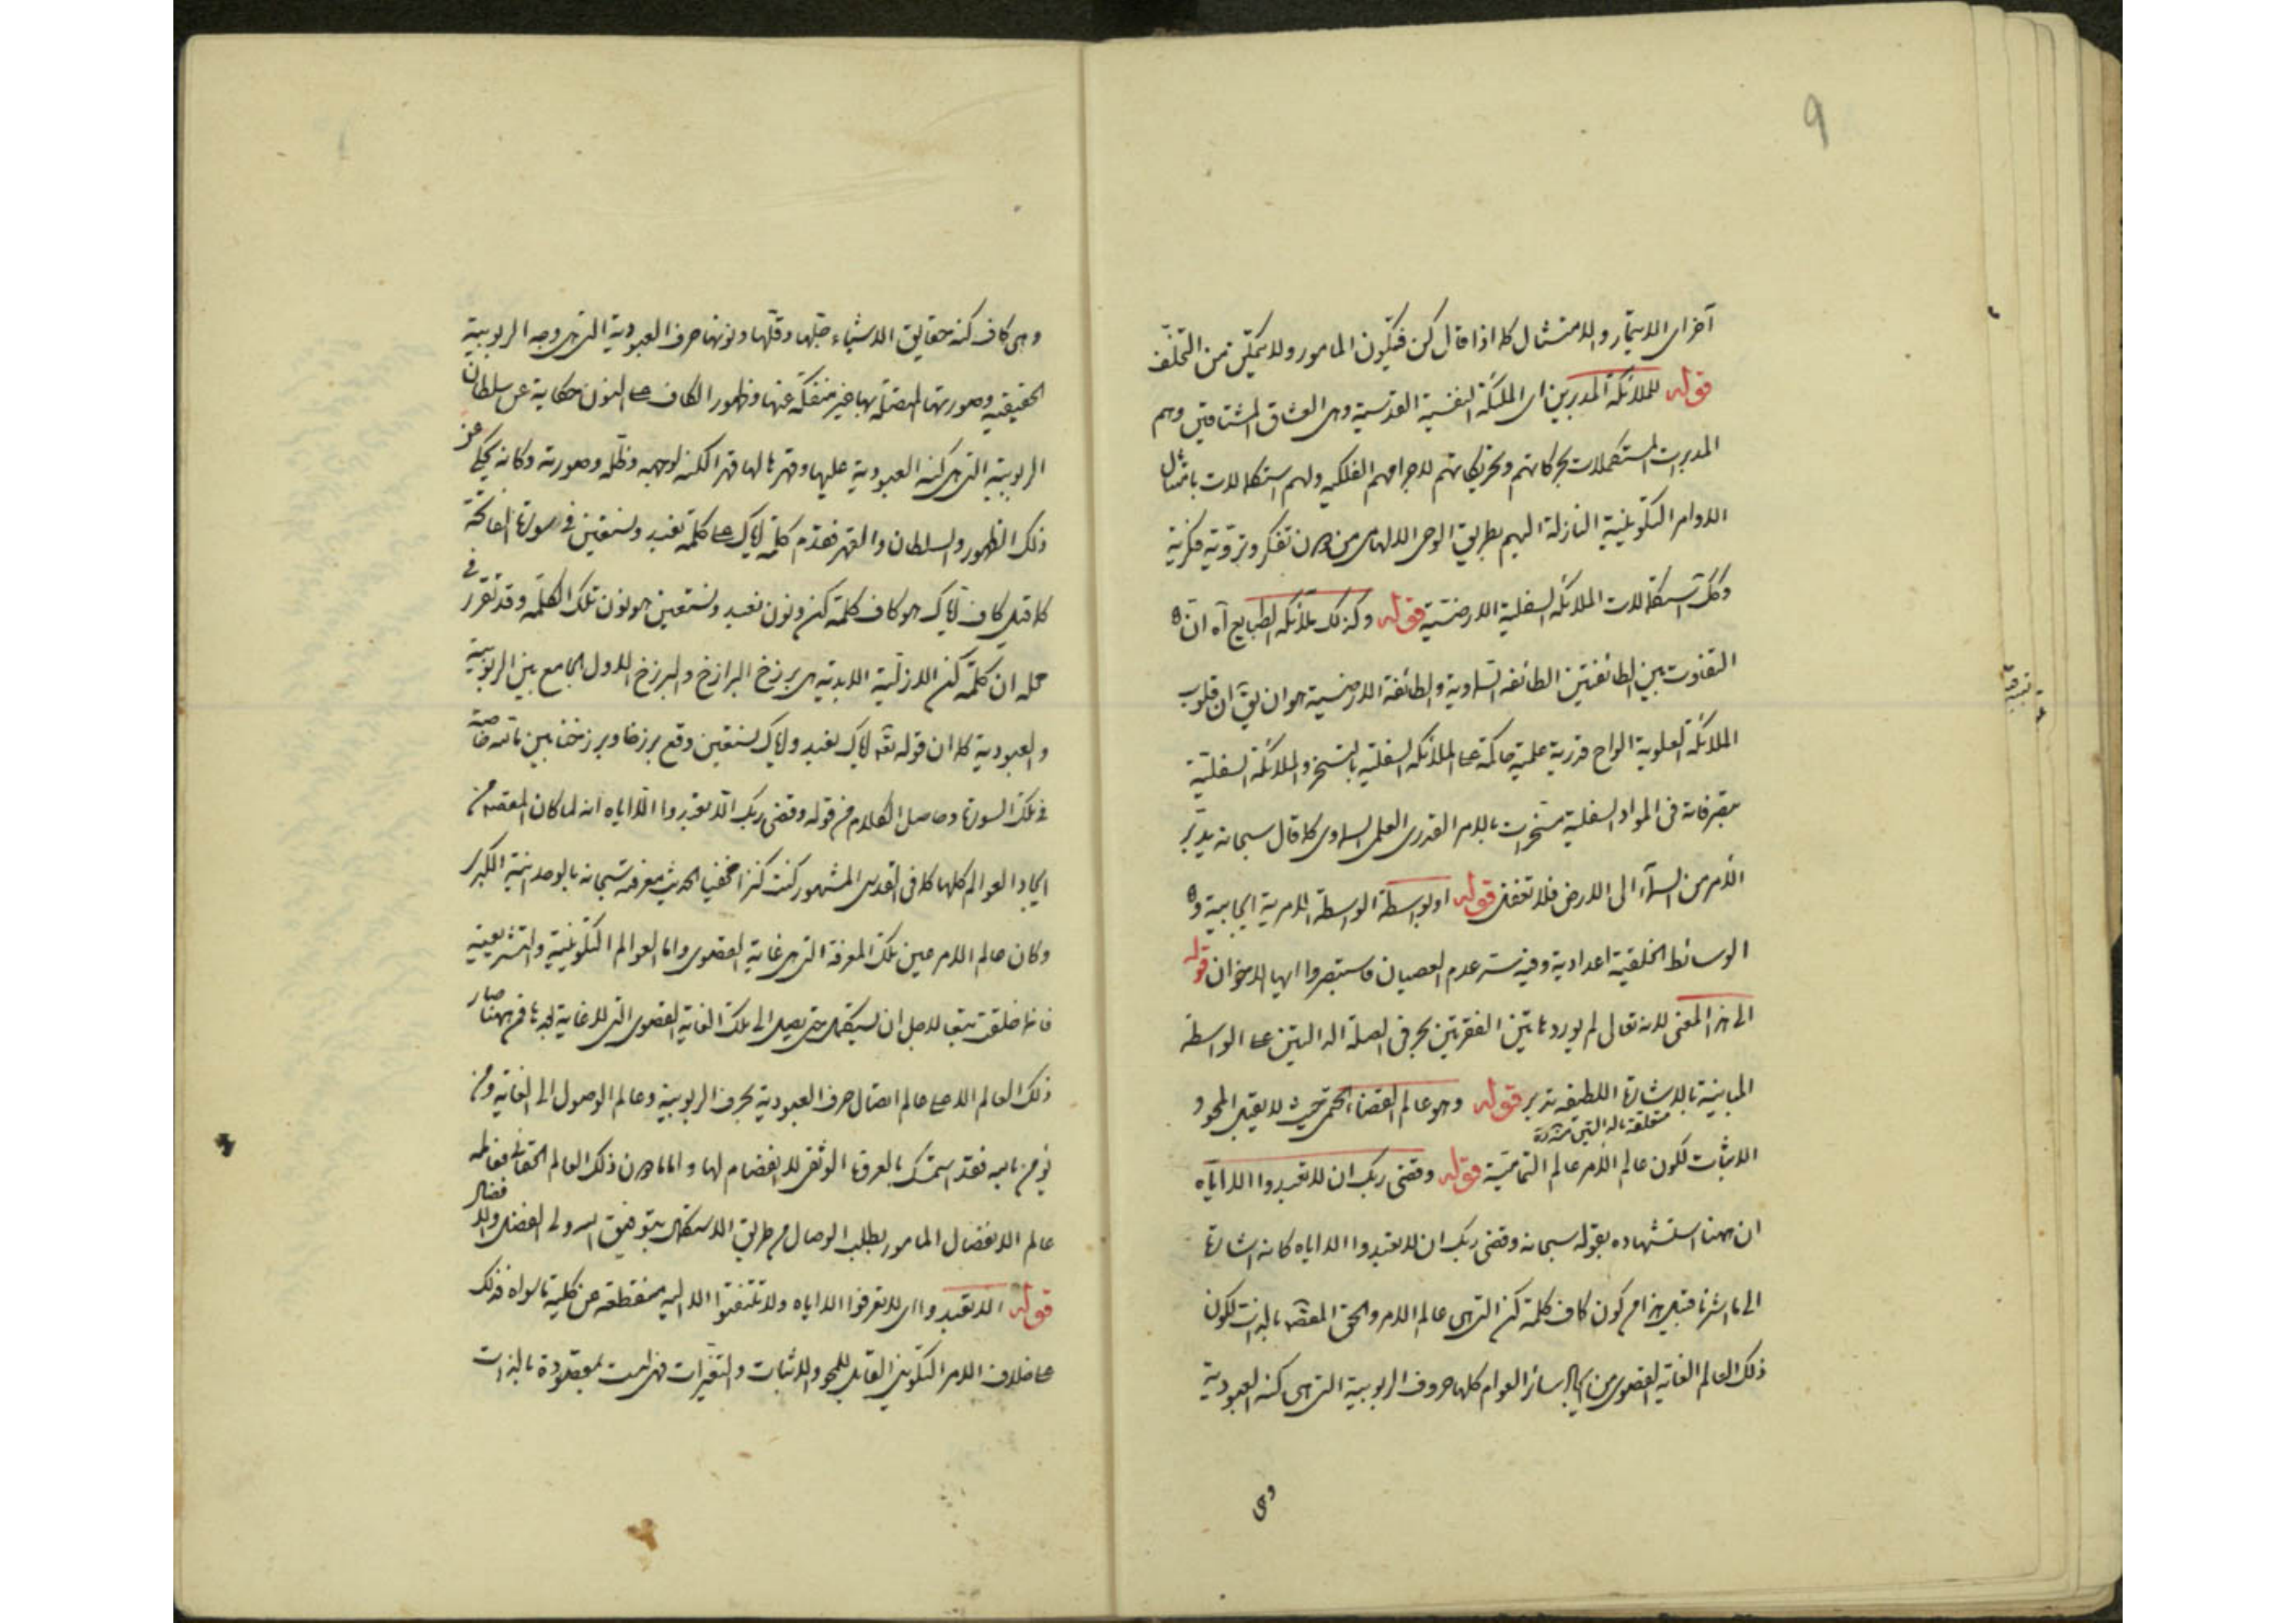 9
آخر اى الايتمار والامتثال كما اذا قال كن فيكون المامور ولا يتمكن من التخلف
قوله للملائكة المدبرين اى الملئكة النفسية القدسية وهى العشاق المشتاقين وهم
المدبرات المستكملات بحركاتهم وتحريكاتهم لاجرامهم الفلكيه ولهم استكمالات بامتثال
الاوامر التكوينية النازلة اليهم بطريق الوحى الالهامى من دون تفكر وتروية فكرية
وكك استكمالات الملائكه السفلية الارضيّة قوله وكذلك ملائكه الطبايع آه انّ
التفاوت بين الطائفتين الطائفه السماوية والطائفة الارضية هو ان يق ان قلوب
الملائكة العلوية الواح قدرية علمية حاكمة على الملائكه السفلية بالتسخر والملائكة السفلية
بتصرفاته فى المواد السفلية مسخرات بالامر القدرى العلمى السماوى كما قال سبحانه يدبّر
الأمر من السمآء الى الارض فلا تغفل قوله او بواسطة الواسطة الامرية ايجابية و
الوسائط الخلقية اعدادية وفيه ستر عدم العصيان فاستبصروا ايها الاخوان قوله
الى هذا المعنى لانه تعالى لم يورد هاتين الفقرتين بحر فى الصلة الدالتين على الواسطة
المباينية بالاشارة اللطيفه تدبر قوله وهو عالم القضاء الحتمى بحيث لا يقبل المحو و
متعلقة بالدالتين
الاثبات لكون عالم الأمر عالم التماميّة قوله وقضى ربك ان لا تعبدوا الا ايّاه
ان ههنا استشهاده بقوله سبحانه وقضى ربك ان لا تعبدوا الا اياه كانه اشارة
الى ما اشرنا قبيل هذا من كون كاف كلمة كن التى هى عالم الامر والحق المقصود بالذات لكون
ذلك العالم الغاية القصوى من ايجاد سائر العوام كلها حروف الربوبية التى هى كنه العبودية
وهى
وهى كاف كنه حقايق الاشياء جلّها وقلّها ونونها حرف العبودية التى هى وجه الربوبية
الحقيقيه وصورتها المتصلة بها غير منفكة عنها وظهور الكاف على النون حكاية عن سلطان
الربوبية التى هى كنه العبودية عليها وقهرها لها قهر الكنه لوجهه وظلّه وصورته وكانه يحكى عن
ذلك الظهور والسلطان والقهر تقدّم كلمة اياك على كلمه نعبد ونستعين فى سورة الفاتحة
كما قيل كاف اياك هو كاف كلمة كن ونون نعبد ونستعين هو نون تلك الكلمه وقد تقرر فى
محله ان كلمة كن الازلية الابدية هى برزخ البرازخ والبرزخ الاول الجامع بين الربوبية
والعبودية كما ان قوله تعه اياك نعبد واياك نستعين وقع برزخا وبرزخنا بين
فى تلك السورة وحاصل الكلام فى قوله وقضى ربك الا تعبدوا الا اياه انه لما كان المقصد من
ايجاد العوالم كلها كما فى القدسى المشهور كنت كنزا مخفيا الحديث معرفته سبحانه بالوحدانية الكبرى
وكان عالم الامر عين تلك المعرفة التى هى غاية القصوى واما العوالم التكوينية والتشريعية
فانما خلقت تبعا لاجل ان يستكمل حتى يصل الى تلك الغاية القصوى التى لا غاية بعدها فمن ههنا صار
ذلك العالم الاعلى عالم اتصال حرف العبودية بحرف الربوبية وعالم الوصول الى الغاية ومن
يؤمن بالله فقد استمسك بالعروة الوثقى لا انفصام لها واما ما دون ذلك العالم الحقانى فعالمه
عالم الانفصال المامور بطلب الوصال من طريق الاستكمال بتوفيق الله ولى الفضل والافضال
قوله الا تعبدوا اى لا تعرفوا الا اياه ولا تلتفتوا الا اليه منقطعه عن كلية ما سواه فذلك
على خلاف الامر التكوينى القابل للمحو والاثبات والتغيرات فهى ليست بمقصودة بالذات